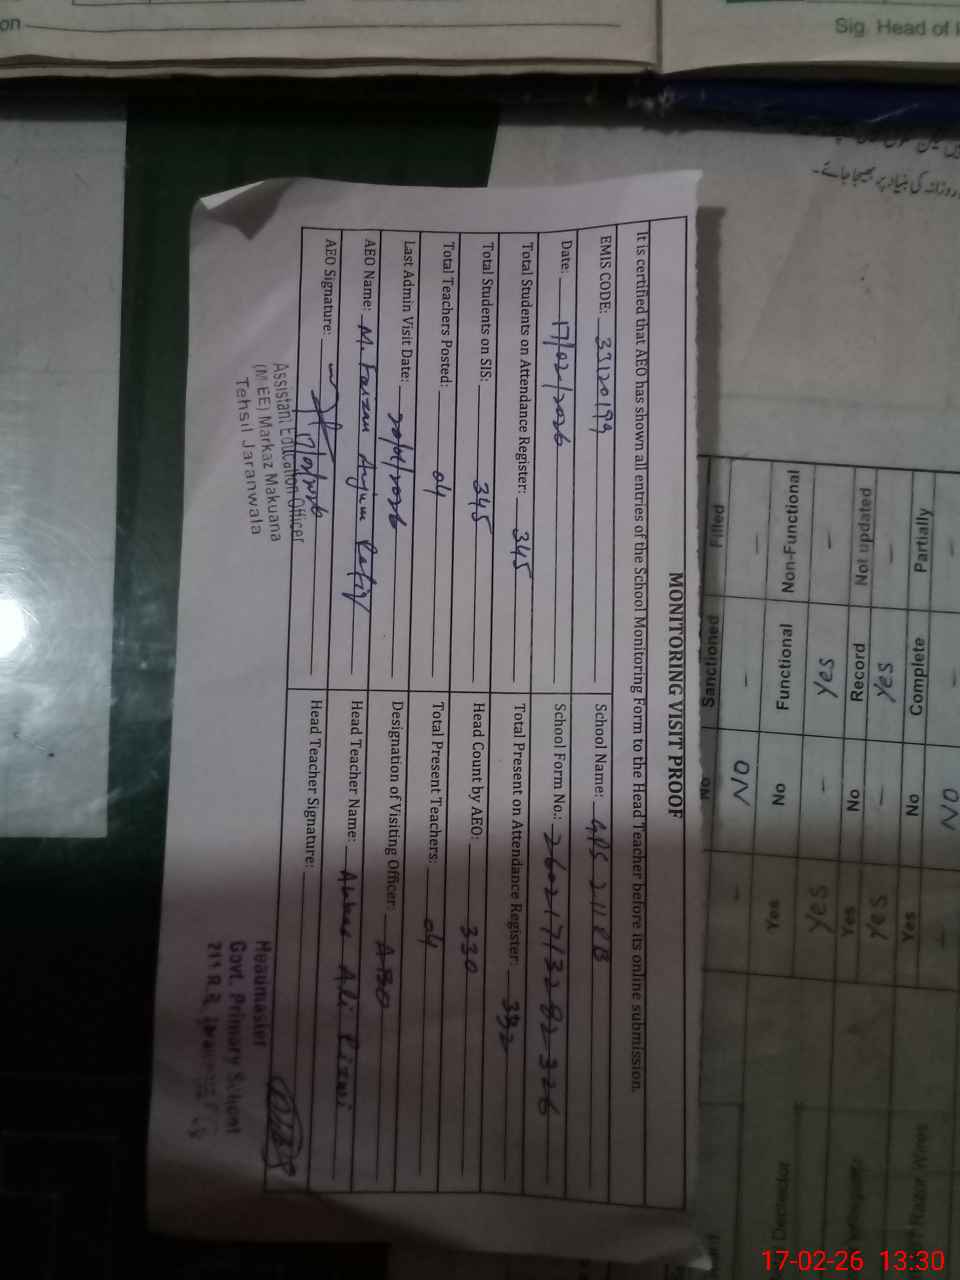 on
Sig. Head of
MONITORING VISIT PROOF
It is certified that AEO has shown all entries of the School Monitoring Form to the Head Teacher before its online submission.
EMIS CODE: 33120199 School Name: GPS 211 RB
Date: 17/02/2026 School Form No.: 260217/3282326
Total Students on Attendance Register: 345 Total Present on Attendance Register: 332
Total Students on SIS: 345 Head Count by AEO: 330
Total Teachers Posted: 04 Total Present Teachers: 04
Last Admin Visit Date: 20/01/2026 Designation of Visiting Officer: AEO
AEO Name: M. Faizan Anjum Head Teacher Name: Ali Rizvi
AEO Signature: 17/02/2026 Head Teacher Signature:
Assistant Education Officer
(M-EE) Markaz Makuana
Tehsil Jaranwala
Headmaster
Govt. Primary School
211 R.B.
روزانہ کی بنیاد پر بھیجا جائے۔
Filled Sanctioned No
NO
Non-Functional Functional No Yes
Yes Yes
Not updated Record No Yes
Yes Yes
Partially Complete No Yes
NO
Razor Wires
17-02-26 13:30